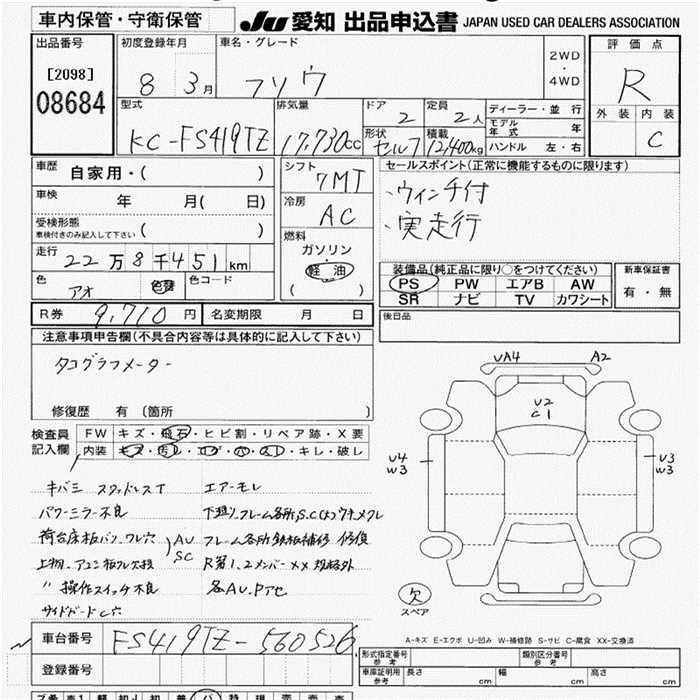 車内保管・守衛保管
JU 愛知 出品申込書 JAPAN USED CAR DEALERS ASSOCIATION
出品番号
[2098]
08684
初度登録年月
8 3月
車名・グレード
フソウ
2WD
・
4WD
評価点
R
外装 内装
C
型式
KC-FS419TZ
排気量
17,730cc
ドア
2
定員
2人
形状
セルフ
積載
12,400kg
ディーラー・並行
モデル年式 年
ハンドル 左・右
車歴 自家用・( )
車検 年 月( 日)
受検形態
車検付きのみ記入して下さい ( )
走行 22万8千451km
色 アオ 色替 色コード
シフト
7MT
冷房
AC
燃料
ガソリン・
軽油
( )
セールスポイント(正常に機能するものに限ります)
・ウィンチ付
・実走行
装備品(純正品に限り○をつけてください)
PS PW エアB AW
SR ナビ TV カワシート
新車保証書
有・無
R券 9,710円 名変期限 月 日
後日品
注意事項申告欄(不具合内容等は具体的に記入して下さい)
タコグラフメーター
修復歴 有(箇所 )
検査員
記入欄
FW キズ・飛石・ヒビ割・リペア跡・X要
内装 キズ・汚レ・コゲ・穴・スレ・キレ・破し
キバミ スタッドレスT エアーモレ
パワーミラー不良 下廻り、フレーム各所S.C(大)ワキメクレ
荷台床板パンク、ワレ穴 AU SC フレーム各所鉄板補修 修復
R第1.2メンバーXX 規格外
〃 操作スイッチ不良 各AU.Pアセ
サイドガードC穴
UA4 A2
U2
C1
U4
W3
U3
W3
欠
スペア
A-キズ E-エクボ U-凹み W-補修跡 S-サビ C-腐食 XX-交換済
車台番号 FS419TZ-560526
登録番号
形式指定番号
参考
類別区分番号
参考
車庫証明用
参考
長さ cm 幅 cm 高さ cm